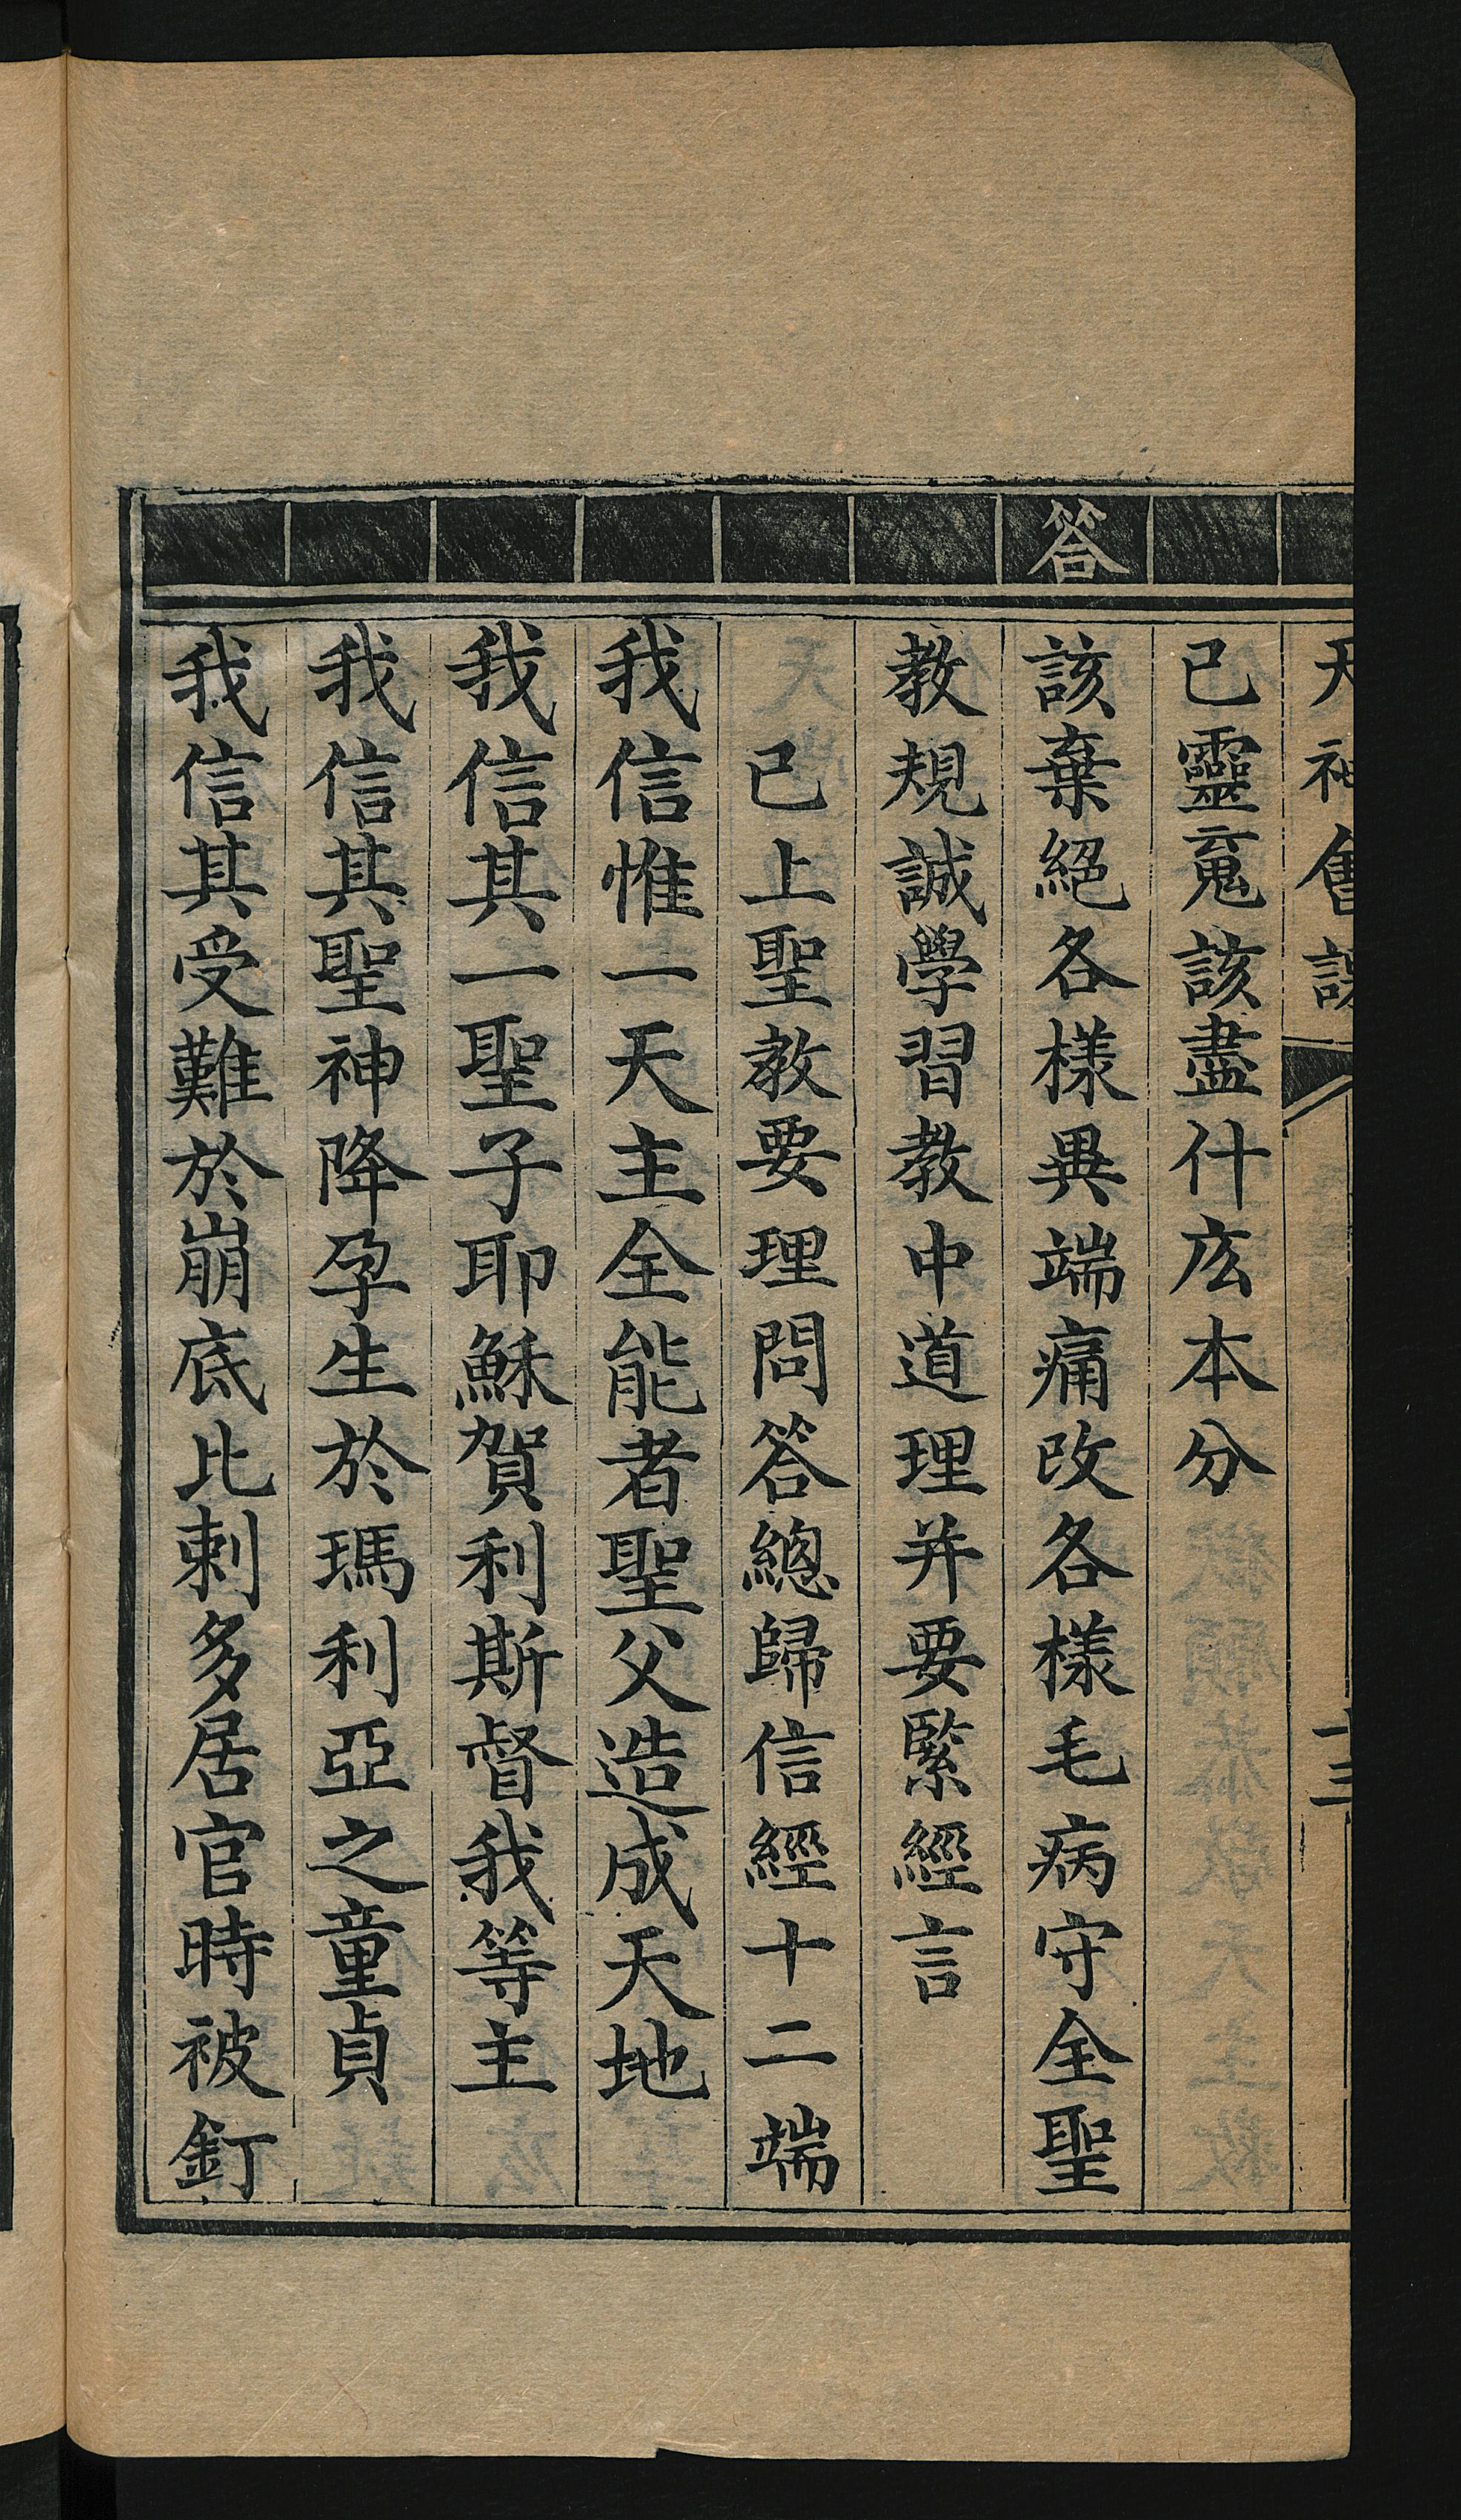 天神會課 十三
己靈䰟該盡什庅本分
答
該棄絕各樣異端痛改各樣毛病守全聖
教規誠學習教中道理并要緊經言
已上聖教要理問答總歸信經十二端
我信惟一天主全能者聖父造成天地
我信其一聖子耶穌賀利斯督我等主
我信其聖神降孕生於瑪利亞之童貞
我信其受難於崩底比剌多居官時被釘